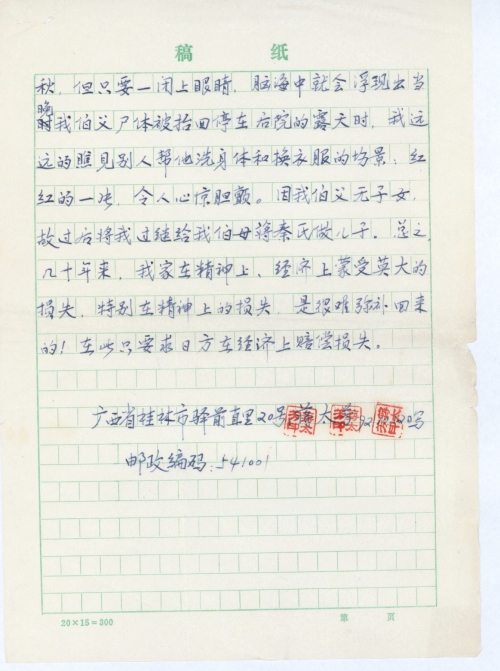 稿 纸
秋，但只要一闭上眼睛，脑海中就会浮现出当
晚
我伯父尸体被抬回停在后院的露天时，我远
远的瞧见别人帮他洗身体和换衣服的场景：红
红的一块，令人心惊胆颤。因我伯父无子女，
故过后将我过继给我伯母蒋秦氏做儿子。总之，
几十年来，我家在精神上、经济上蒙受莫大的
损失，特别在精神上的损失，是很难弥补回来
的！在此只要求日方在经济上赔偿损失。
广西省桂林市驿前直里20号
邮政编码：541001
20×15=300
第 页